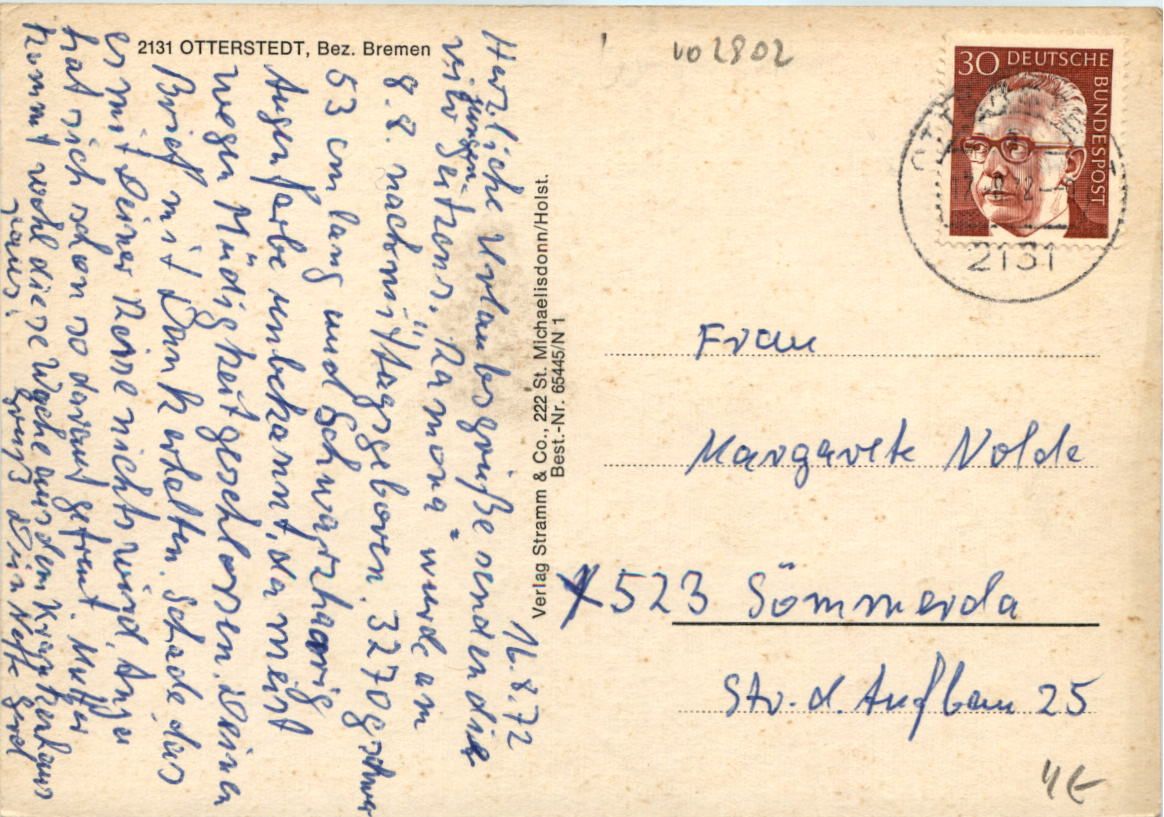 2131 OTTERSTEDT, Bez. Bremen
vo 2802
30 DEUTSCHE BUNDESPOST
2131
16.8.72
Herzliche Urlaubsgrüße senden die
jungen
Seitzens. "Ramona" wurde am
8.8. nachmittags geboren. 3270 g schwer
53 cm lang und schwarzhaarig
Augenfarbe unbekannt, da meist
wegen Müdigkeit geschlossen. Deinen
Brief mit Dank erhalten. Schade, das
es mit Deiner Reise nichts wird.
hat sich schon so darauf gefreut. Mutter
kommt wohl diese Woche aus dem Krankenhaus
raus.
Gruß Dein Neffe Gerd
Verlag Stramm & Co., 222 St. Michaelisdonn/Holst.
Best.-Nr. 65445/N 1
Frau
Margarete Nolde
X 523 Sömmerda
Str. d. Aufbau 25
4€